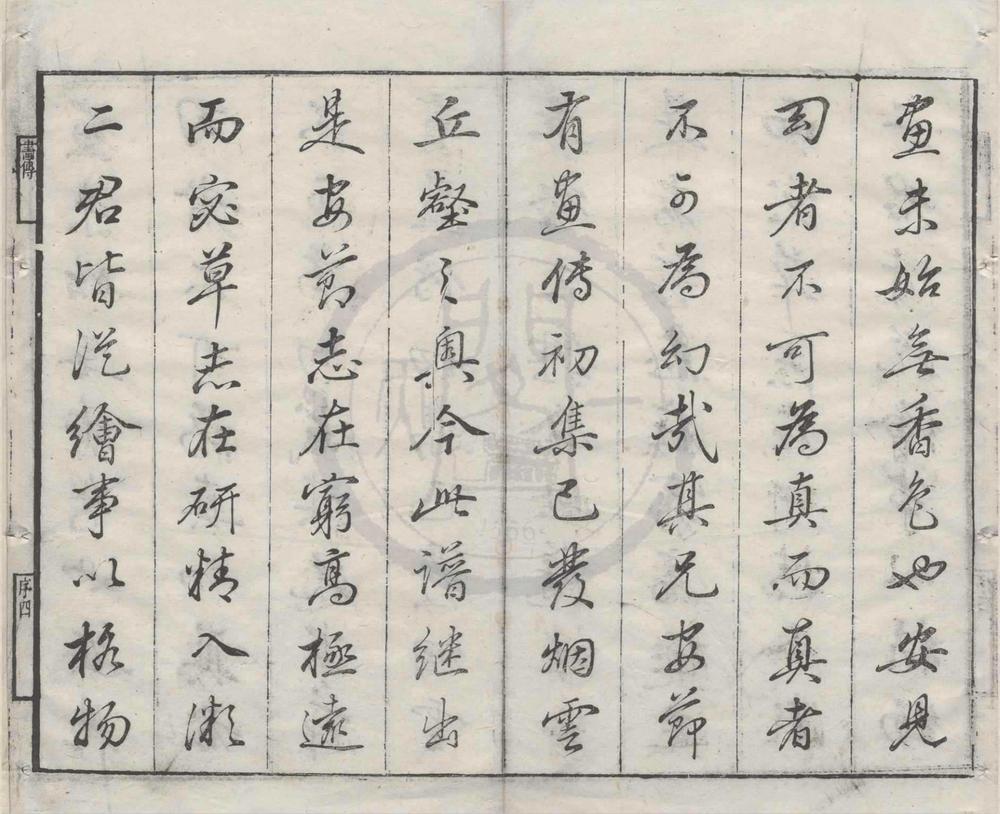 畫未始無香色也安見
幻者不可為真而真者
不可為幻哉其兄安節
有畫傳初集已發烟雲
丘壑之奧今此譜継出
是安節志在窮高極遠
而宓草志在研精入微
二君皆從繪事以格物
畫傳
序四